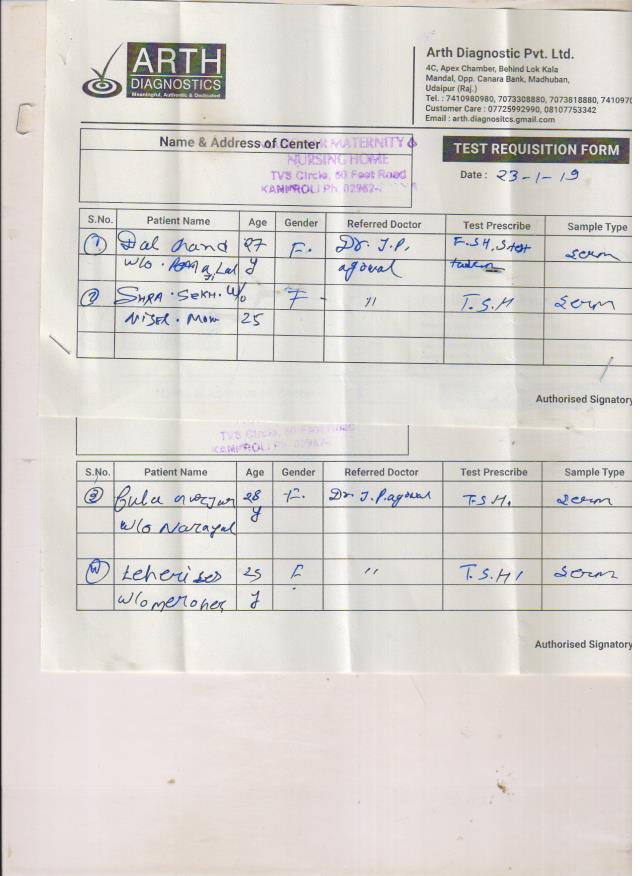 ARTH
DIAGNOSTICS
Meaningful, Authentic & Dedicated
Arth Diagnostic Pvt. Ltd.
4C, Apex Chamber, Behind Lok Kala
Mandal, Opp. Canara Bank, Madhuban,
Udaipur (Raj.)
Tel. : 7410980980, 7073308880, 7073818880, 741097
Customer Care : 07725992990, 08107753342
Email : arth.diagnositcs.gmail.com
Name & Address of Center
MATERNITY &
NURSING HOME
TVS Circle, 50 Feet Road
KANKROLI Ph. 02952-
TEST REQUISITION FORM
Date : 23-1-19
S.No. Patient Name Age Gender Referred Doctor Test Prescribe Sample Type
1 Dal chand 27 F. Dr. J.P. F.SH, serm
W/o Lal y agowal
2 SHRA. SEKH. W/o F - " T.S.H serm
25
Authorised Signatory
TVS Circle, 50 Feet Road
KANKROLI Ph. 02952-
S.No. Patient Name Age Gender Referred Doctor Test Prescribe Sample Type
3 28 F. Dr J.P. agowal T.SH. serm
W/o Narayal y
4 25 F " T.S.H serm
W/o y
Authorised Signatory